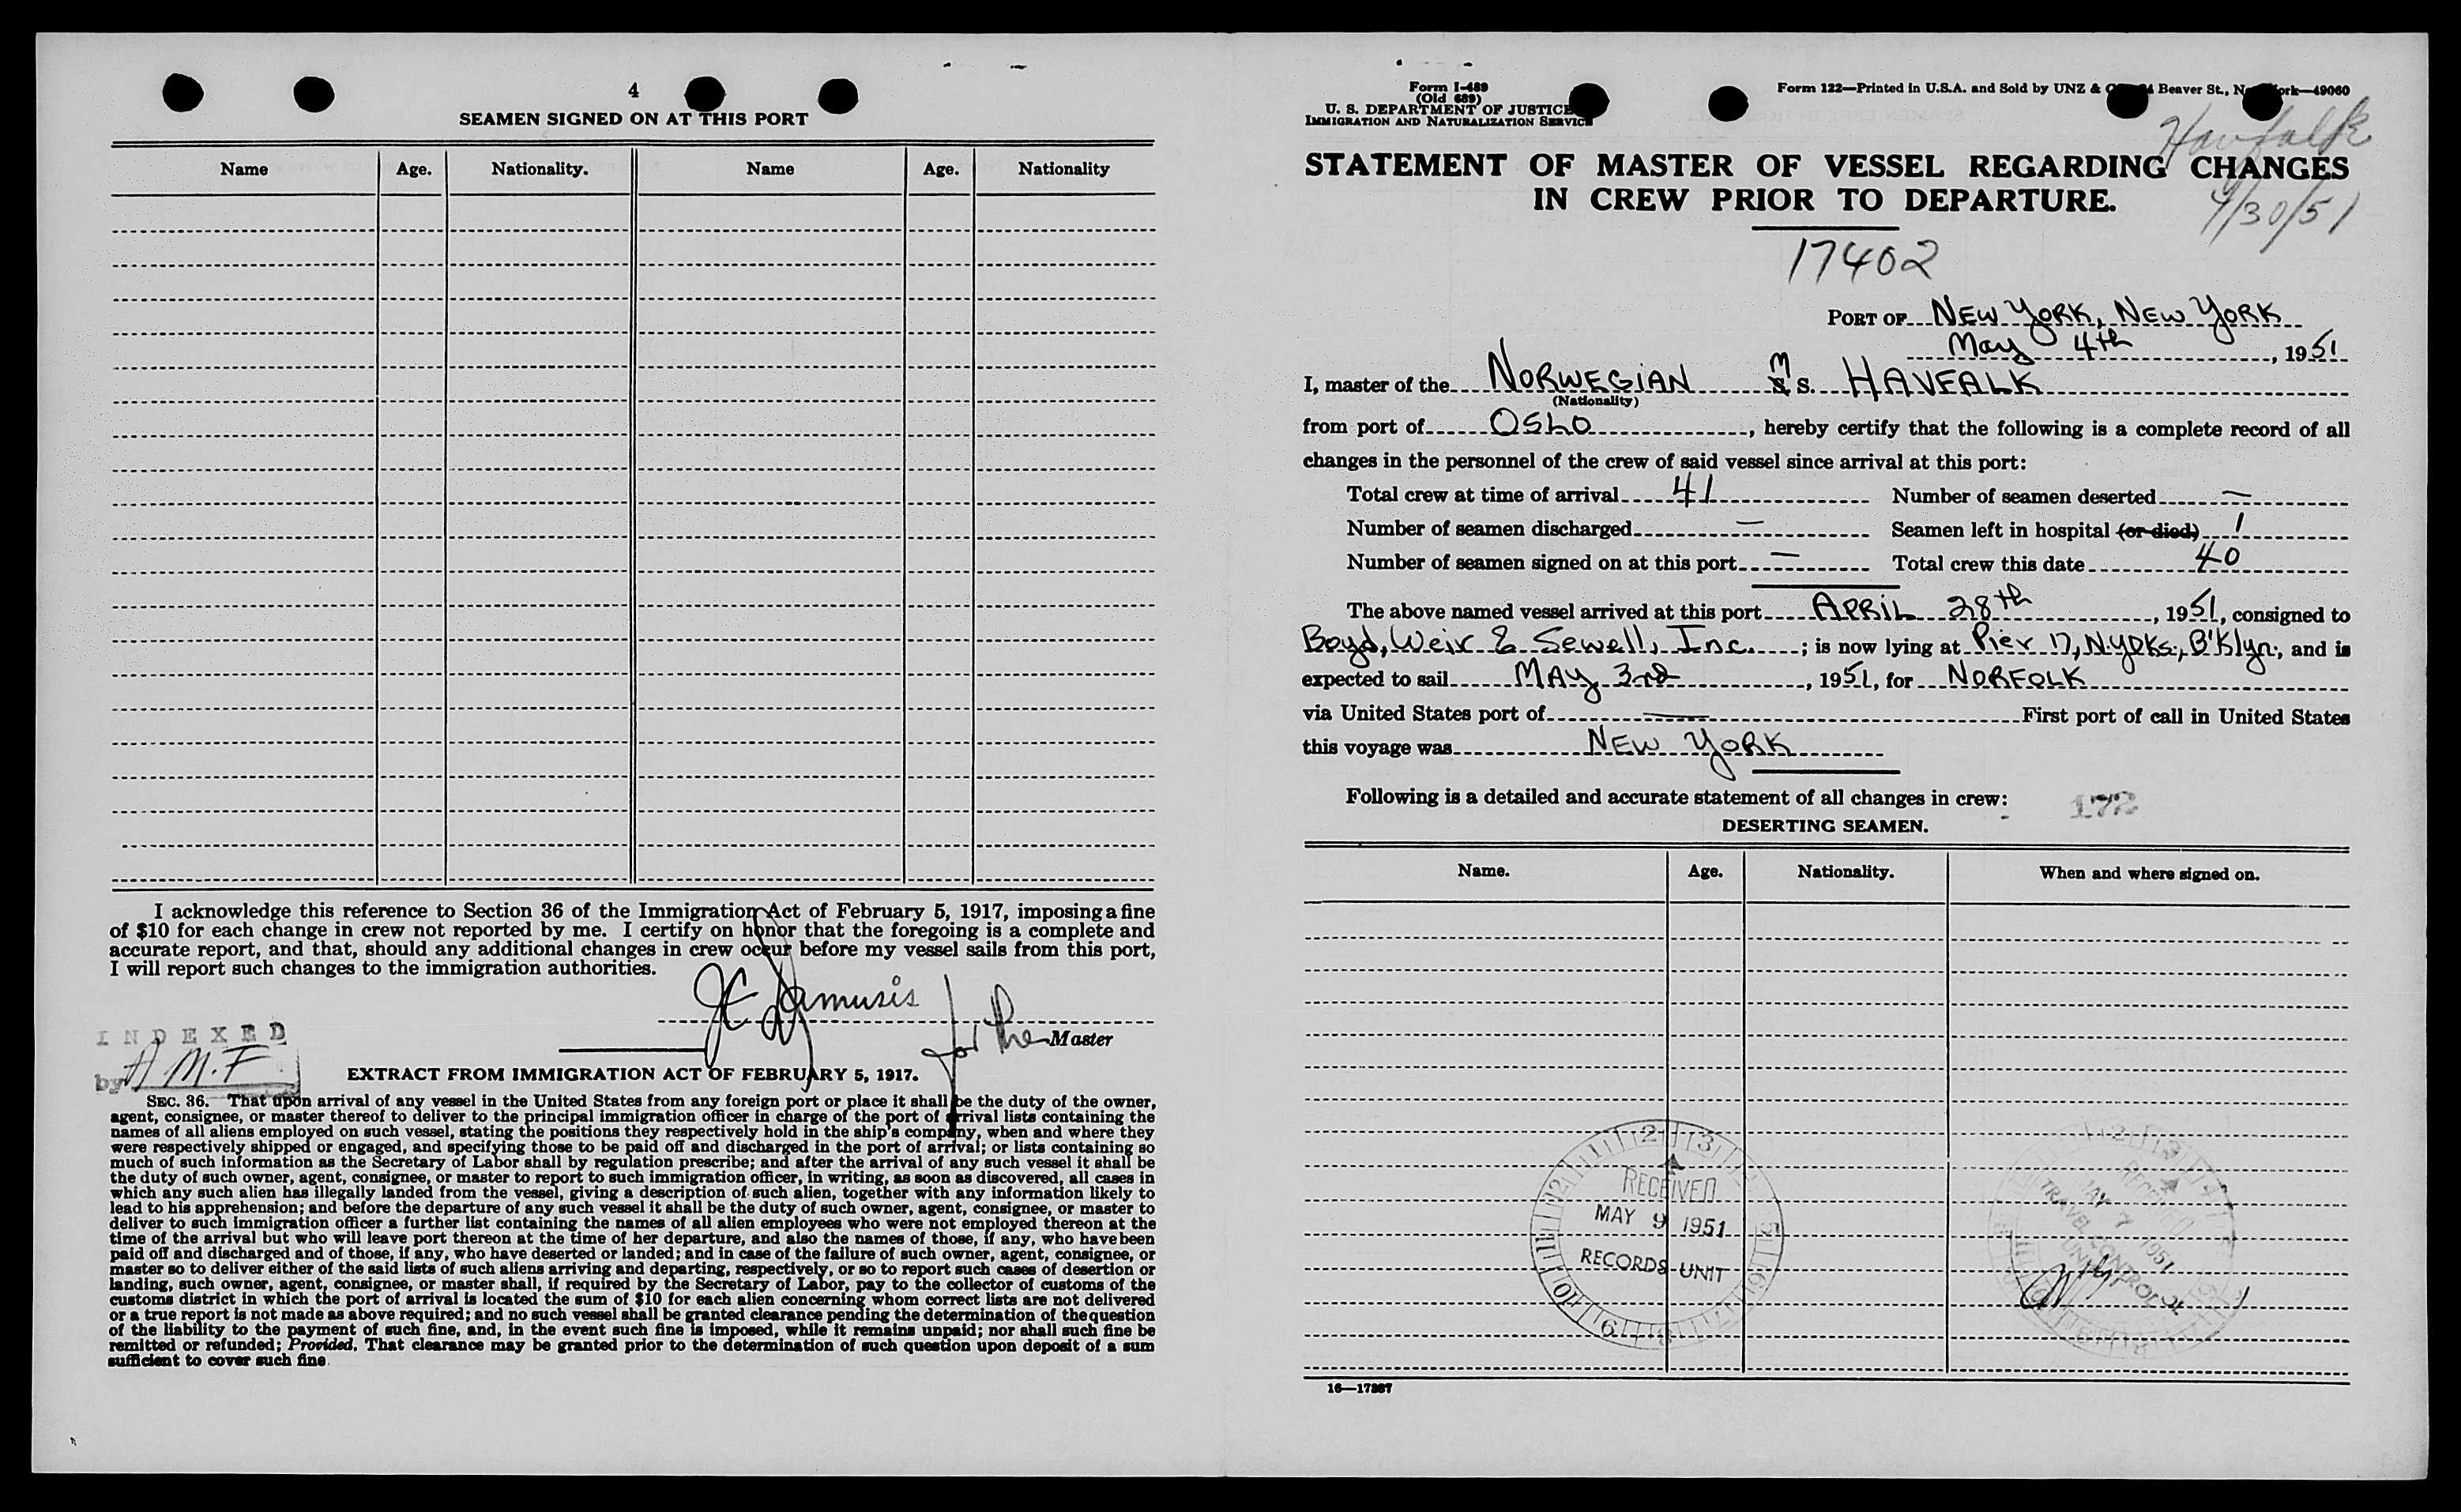 4
SEAMEN SIGNED ON AT THIS PORT
Name Age. Nationality. Name Age. Nationality
I acknowledge this reference to Section 36 of the Immigration Act of February 5, 1917, imposing a fine
of $10 for each change in crew not reported by me. I certify on honor that the foregoing is a complete and
accurate report, and that, should any additional changes in crew occur before my vessel sails from this port,
I will report such changes to the immigration authorities.
for the Master
INDEXED
by A M.F
EXTRACT FROM IMMIGRATION ACT OF FEBRUARY 5, 1917.
SEC. 36. That upon arrival of any vessel in the United States from any foreign port or place it shall be the duty of the owner,
agent, consignee, or master thereof to deliver to the principal immigration officer in charge of the port of arrival lists containing the
names of all aliens employed on such vessel, stating the positions they respectively hold in the ship's company, when and where they
were respectively shipped or engaged, and specifying those to be paid off and discharged in the port of arrival; or lists containing so
much of such information as the Secretary of Labor shall by regulation prescribe; and after the arrival of any such vessel it shall be
the duty of such owner, agent, consignee, or master to report to such immigration officer, in writing, as soon as discovered, all cases in
which any such alien has illegally landed from the vessel, giving a description of such alien, together with any information likely to
lead to his apprehension; and before the departure of any such vessel it shall be the duty of such owner, agent, consignee, or master to
deliver to such immigration officer a further list containing the names of all alien employees who were not employed thereon at the
time of the arrival but who will leave port thereon at the time of her departure, and also the names of those, if any, who have been
paid off and discharged and of those, if any, who have deserted or landed; and in case of the failure of such owner, agent, consignee, or
master so to deliver either of the said lists of such aliens arriving and departing, respectively, or so to report such cases of desertion or
landing, such owner, agent, consignee, or master shall, if required by the Secretary of Labor, pay to the collector of customs of the
customs district in which the port of arrival is located the sum of $10 for each alien concerning whom correct lists are not delivered
or a true report is not made as above required; and no such vessel shall be granted clearance pending the determination of the question
of the liability to the payment of such fine, and, in the event such fine is imposed, while it remains unpaid; nor shall such fine be
remitted or refunded; Provided, That clearance may be granted prior to the determination of such question upon deposit of a sum
sufficient to cover such fine.
Form I-489
(Old 689)
U. S. DEPARTMENT OF JUSTICE
IMMIGRATION AND NATURALIZATION SERVICE
Form 122—Printed in U.S.A. and Sold by UNZ & Beaver St., —49060
Havfalk
STATEMENT OF MASTER OF VESSEL REGARDING CHANGES
IN CREW PRIOR TO DEPARTURE.
4/30/51
17402
PORT OF NEW YORK, NEW YORK
May 4th, 1951
I, master of the NORWEGIAN M S. HAVFALK
(Nationality)
from port of OSLO, hereby certify that the following is a complete record of all
changes in the personnel of the crew of said vessel since arrival at this port:
Total crew at time of arrival 41 Number of seamen deserted —
Number of seamen discharged — Seamen left in hospital (or died) 1
Number of seamen signed on at this port — Total crew this date 40
The above named vessel arrived at this port APRIL 28th, 1951, consigned to
Boyd, Weir & Sewell, Inc.; is now lying at Pier 17, N.Y.Dks., B'klyn., and is
expected to sail MAY 3rd, 1951, for NORFOLK
via United States port of — First port of call in United States
this voyage was NEW YORK
Following is a detailed and accurate statement of all changes in crew: 172
DESERTING SEAMEN.
Name. Age. Nationality. When and where signed on.
RECEIVED
MAY 9 1951
RECORDS UNIT
RECEIVED
MAY 7 1951
TRAVEL CONTROL
UNIT
16—17267